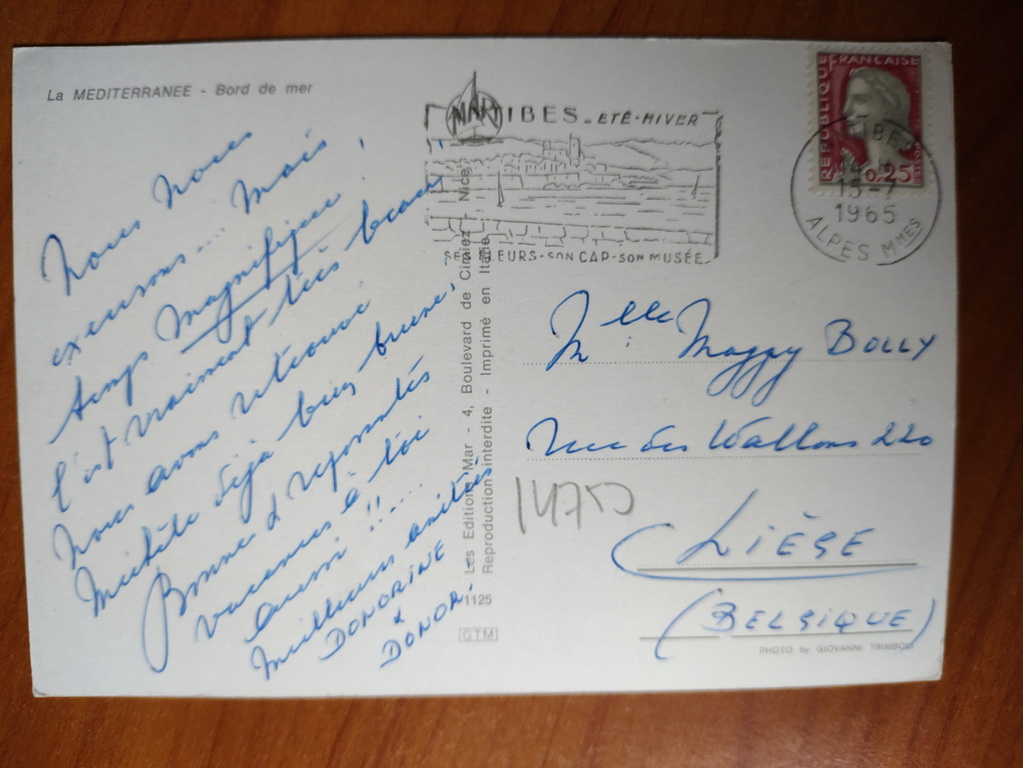 La MEDITERRANEE - Bord de mer
Nous nous
excusons.... Mais
temps Magnifique !
c'est vraiment très beau !
Nous avons retrouvé
Michèle déjà bien brune,
Bonnes & reposantes
vacances à toi
aussi !!....
Meilleures amitiés
DONORINE
&
DONOR.
MAR
ANTIBES - ÉTÉ-HIVER
SES FLEURS - SON CAP - SON MUSÉE
REPUBLIQUE FRANÇAISE
0,25
15-7
1965
ALPES MMES
Les Editions Mar - 4, Boulevard de Cimiez - Nice
Reproduction interdite - Imprimé en Italie
1125
GTM
Mlle Maggy BOLLY
rue des Wallons 220
14750
LIÈGE
(BELGIQUE)
PHOTO by GIOVANNI TRIMBOLI